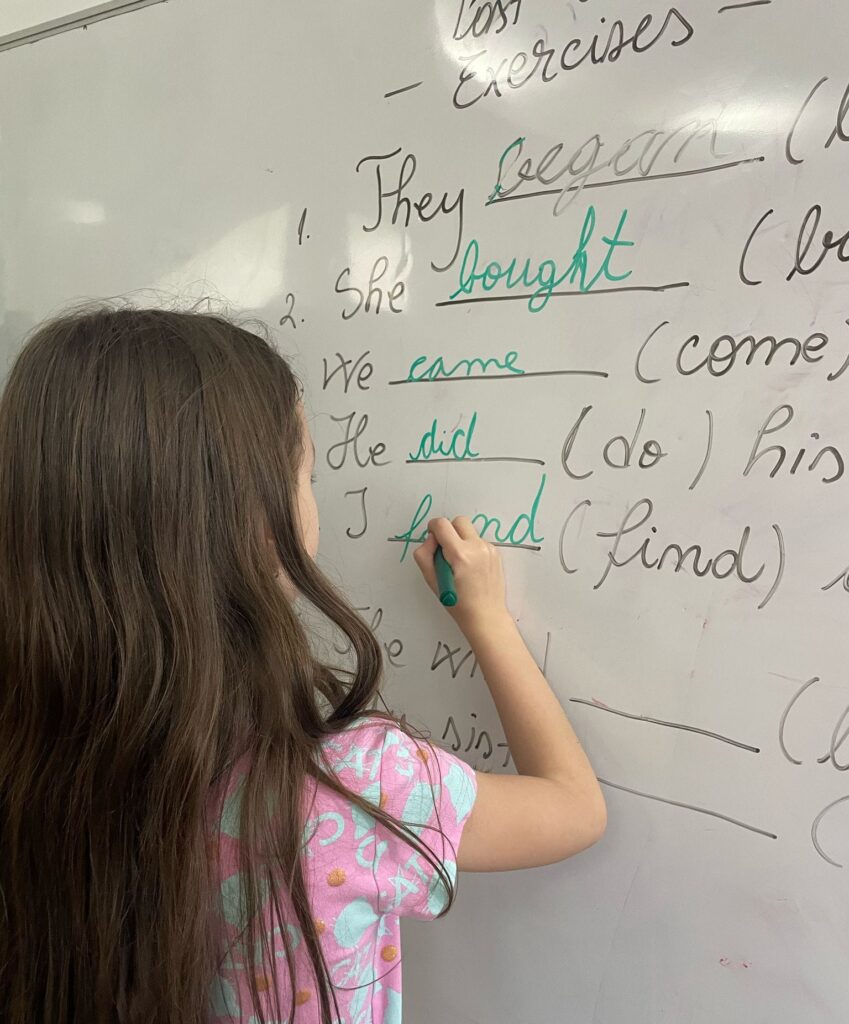 Past
- Exercises -
1. They began (
2. She bought (
We came (come)
He did (do) his
I (find)
(
(